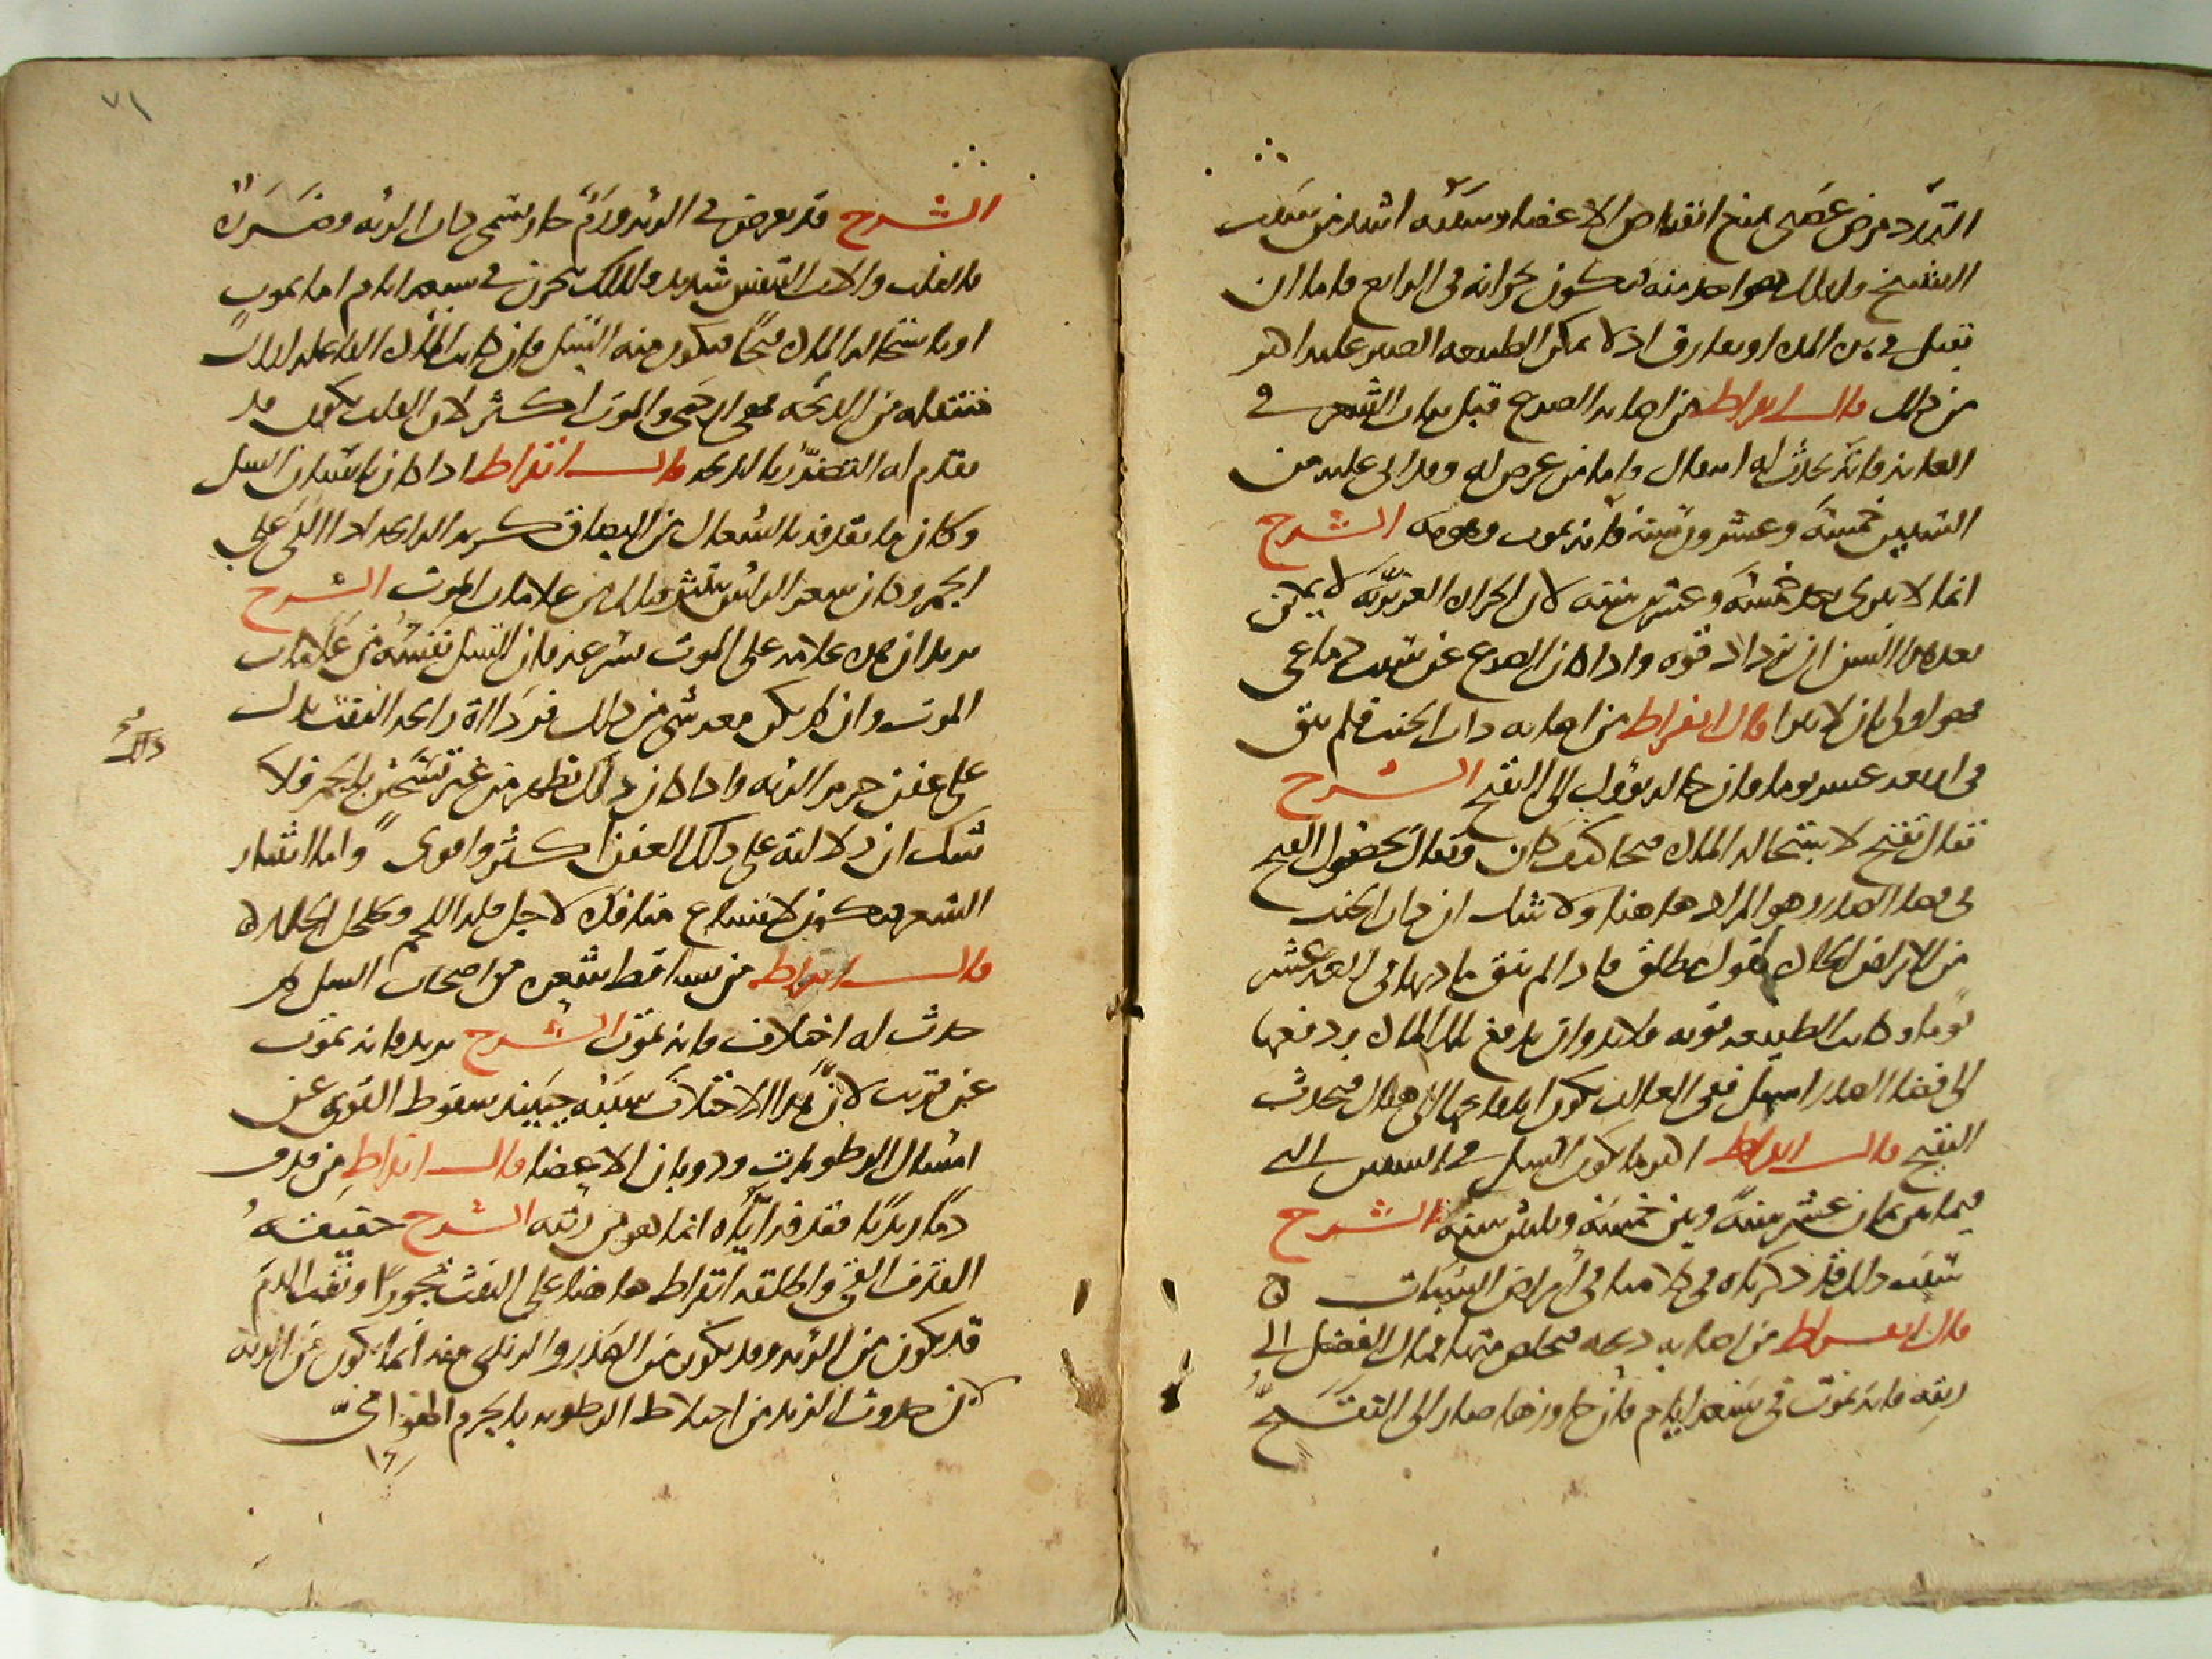 التمدد مرض عصبى يمنع انقباض الاعضا وسببه اشد من سبب
التشنج ولذلك هو احد منه فيكون بحرانه فى الرابع فاما ان
يقتل فى هذه المدة او يفارق اذ لا يمكن الطبيعه الصبر عليه اكثر
من ذلك قال ابقراط من اصابه الصرع قبل نبات الشعر فى
العانه فانه يحدث له انتقال واما من عرض له وقد اتى عليه من
السنين خمسة وعشرون سنه فانه يموت وهو به الشرح
انما لا يبرى بعد خمسة وعشرين سنه لان الحراره الغريزية لا يمكن
بعد هذا السن ان تزداد قوه واذا كان الصرع عن سبب دماغى
فهو اولى بان لا يبرا قال ابقراط من اصابه ذات الجنب فلم ينق
فى اربعه عشر يوما فان حاله يؤول الى التقيح الشرح
يقال تقيح لاستحاله الماده قيحا كيف كان ويقال لحصول القيح
فى فضا الصدر وهو المراد هاهنا ولا شك ان ذات الجنب
من الامراض الحاده بقول مطلق فاذا لم ينق مادتها فى اربعه عشر
يوما وكانت الطبيعه قويه فلابد وان يدفع تلك الماده ودفعها
الى فضا الصدر اسهل ففى الغالب يكون اندفاعها الى هناك فيحدث
التقيح قال ابقراط اكثر ما يكون السل فى السنين التى
فيما بين ثمان عشر سنة وبين خمسه وثلثين سنة الشرح
سبب ذلك قد ذكرناه فى كلامنا فى امراض الشبان ه
قال ابقراط من اصابه ذبحه فتخلص منها فمال الفضل الى
ريته فانه يموت فى سبعه ايام فان جاوزها صار الى التقيح
٧١
الشرح قد يعرض فى الريه ورم حار يسمى ذات الريه وضرره
بالقلب والات التنفس شديد ولذلك بحرن فى سبعه ايام اما بموت
او باستحاله الماده قيحا فيكون منه السل فان كانت الماده الفاعله لذلك
منتقله من الذبحه فهى اردى والموت اكثر لان القلب يكون قد
تقدم له التضرر بالذبحه قال ابقراط اذا كان بانسان السل
وكان ما يقذفه بالسعال من البصاق كريه الرايحه اذا القى على
الجمر وكان شعر الراس ينتثر فذلك من علامات الموت الشرح
يريد ان هذه علامه على الموت بسرعه فان السل نفسه من علامات
الموت وان لم يكن معه شى من ذلك فرداة رايحه النفث يدل
على عفن جرم الريه واذا كان ذلك يظهر من غير تسخن بالجمر فلا
ذلك صح
شك ان دلالته على ذلك العفن اكثر واقوى واما انتثار
الشعر فيكون لاتساع منافذه لاجل قله اللحم وتخلخل الجلد ه
قال ابقراط من تساقط شعره من اصحاب السل ثم
حدث له اختلاف فانه يموت الشرح يريد فانه يموت
عن قريب لان هذا الاختلاف سببه حينيذ سقوط القوى عن
امساك الرطوبات وذوبان الاعضا قال ابقراط من قذف
دما زبديا فقذفه اياه انما هو من ريته الشرح حقيقه
القذف القى واطلقه ابقراط هاهنا على النفث تجوزا ونفث الدم
قد يكون من الريه وقد يكون من الصدر والزبدى منه انما يكون عن الريه
لان حدوث الزبد من اختلاط الرطوبه بالجرم الهوائى